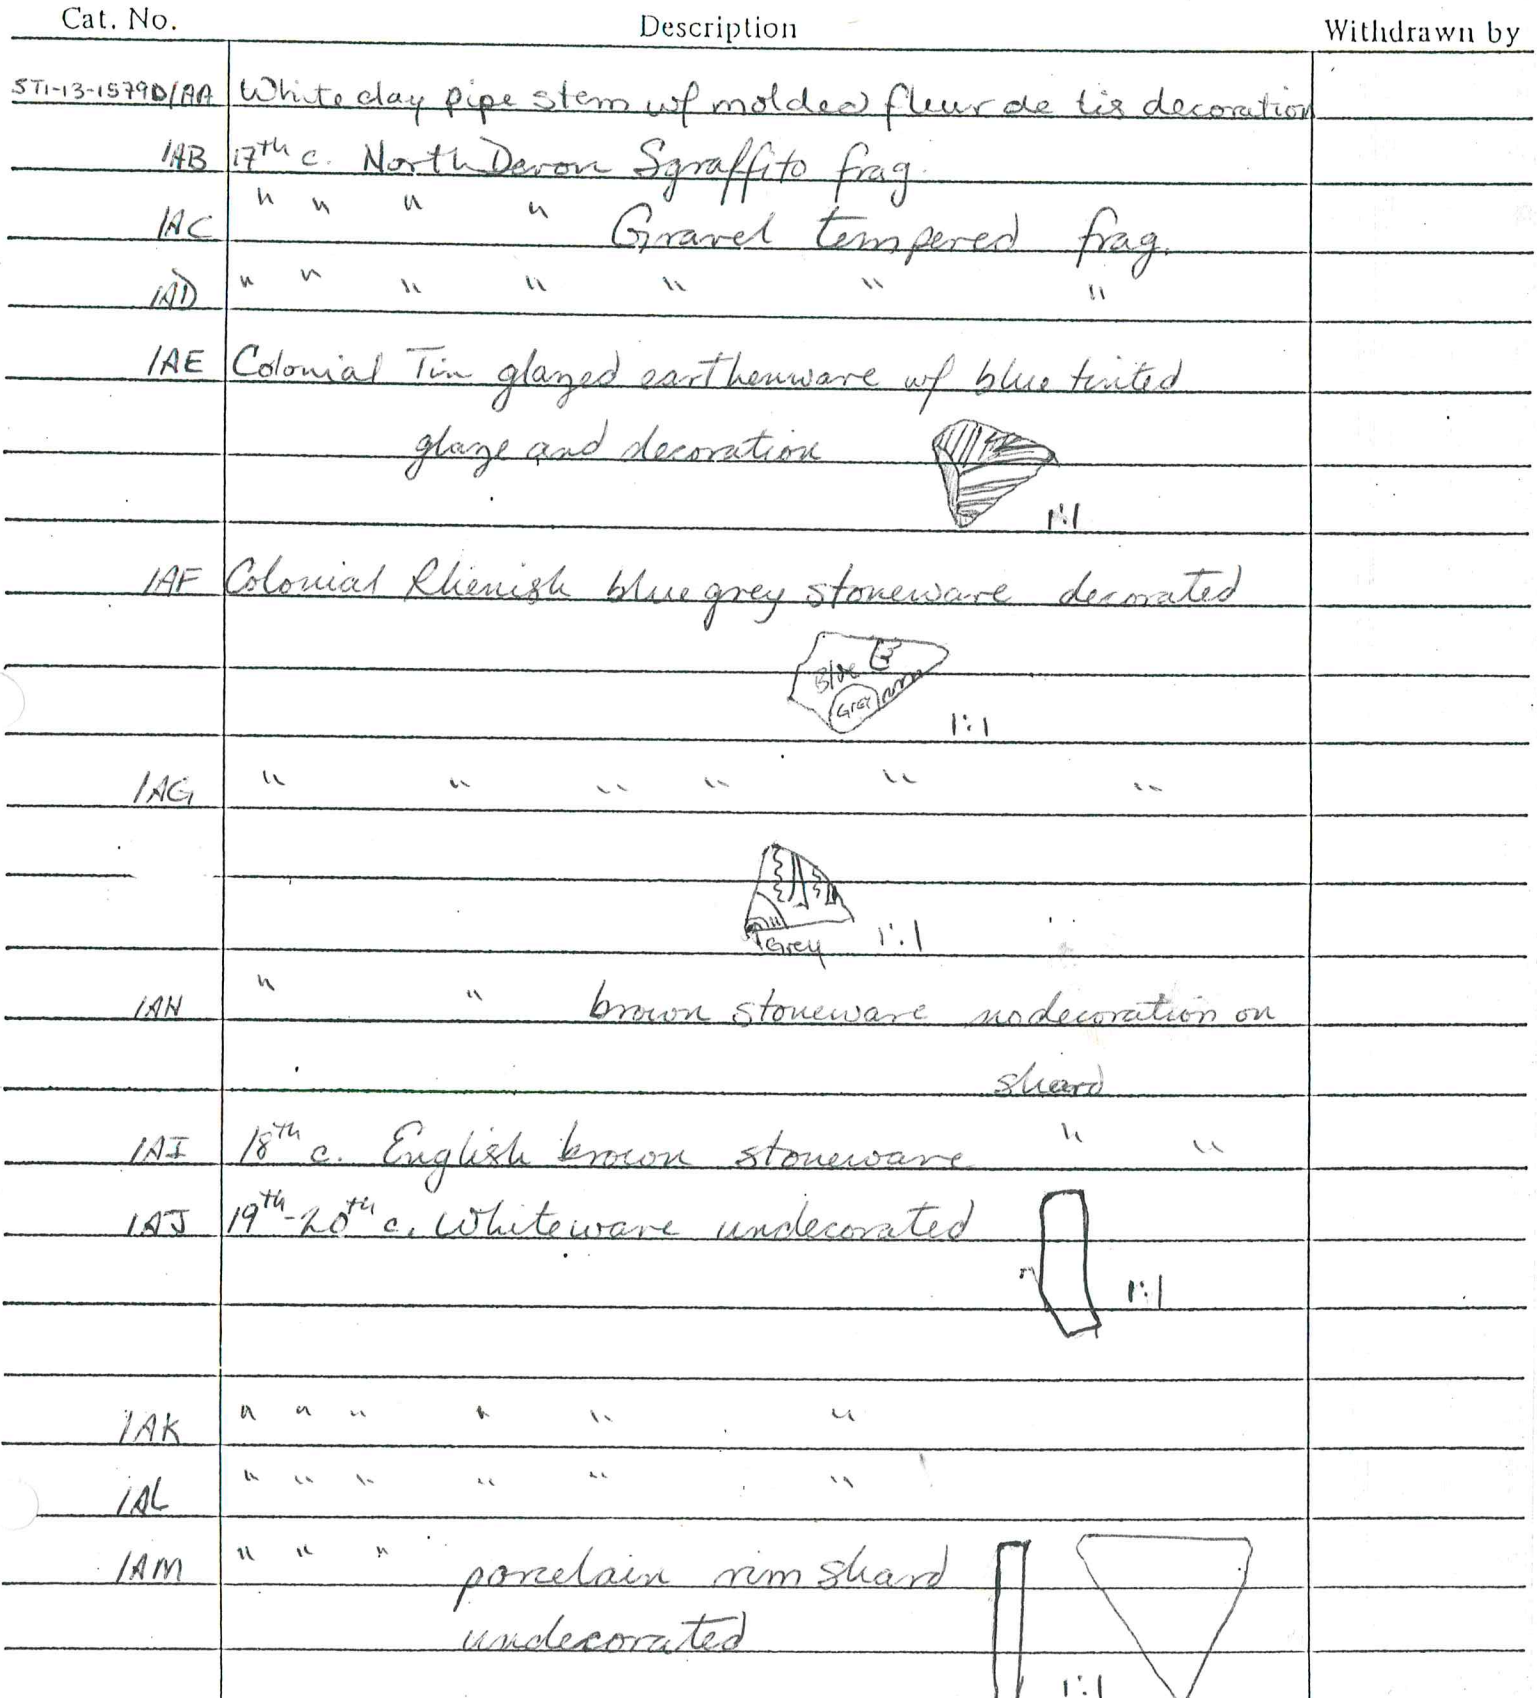 Cat. No. Description Withdrawn by
ST1-13-1579D/AA White clay pipe stem w/ molded fleur de lis decoration
/AB 17th c. North Devon Sgraffito frag.
/AC " " " " Gravel tempered frag.
/AD " " " " " " "
/AE Colonial Tin glazed earthenware w/ blue tinted
glaze and decoration
1:1
/AF Colonial Rhenish blue grey stoneware decorated
Blue
Grey
1:1
/AG " " " " " "
Grey 1:1
/AH " " brown stoneware no decoration on
shard
/AI 18th c. English brown stoneware " "
/AJ 19th-20th c. Whiteware undecorated
1:1
/AK " " " " " "
/AL " " " " " "
/AM " " " porcelain rim shard
undecorated
1:1